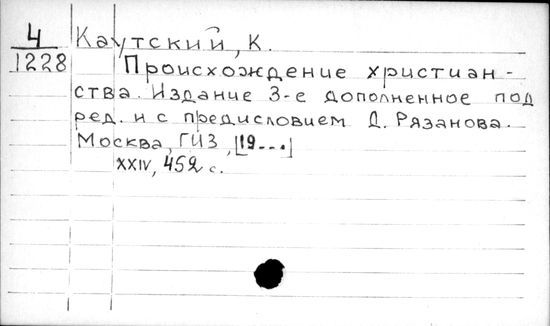 4 Каутский, К.
1228 Происхождение христиан-
ства. Издание 3-е дополненное под
ред. и с предисловием Д. Рязанова.
Москва, ГИЗ, [19...]
XXIV, 452 с.